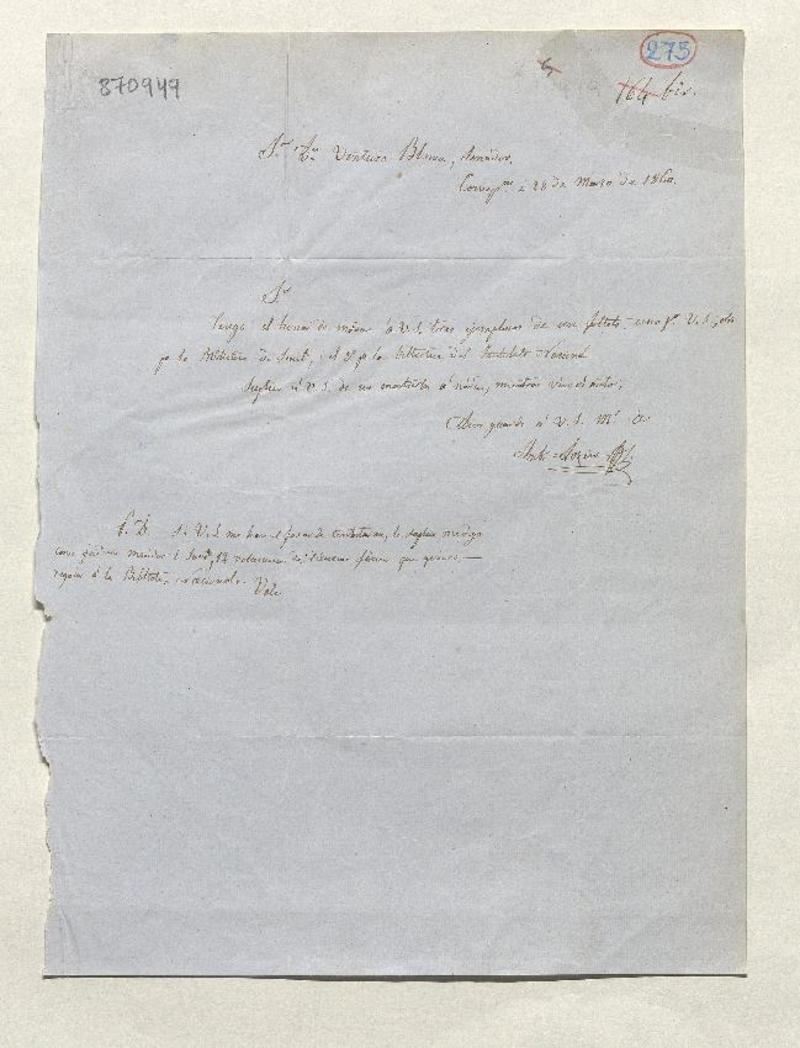 275
870949
164 bis.
Sr. Dn. Ventura Blanco, Senador.
á 28 de Marzo de 1860.
Sr.
Tengo el honor de á V.S. tres ejemplares de un folleto: uno pa. V.S.; otro
pa la Biblioteca de ; i el 3º pa la biblioteca del Instituto Nacional
Suplico á V.S. de no mostrarlo á nadie, mientras viva el autor;
Dios guarde á V.S. ms. as.
P.D. Si V.S. me hace el favor de contestarme, le suplico me diga
como podria mandar á , 12 volumenes que quiero
regalar á la Biblioteca Nacional. Vale